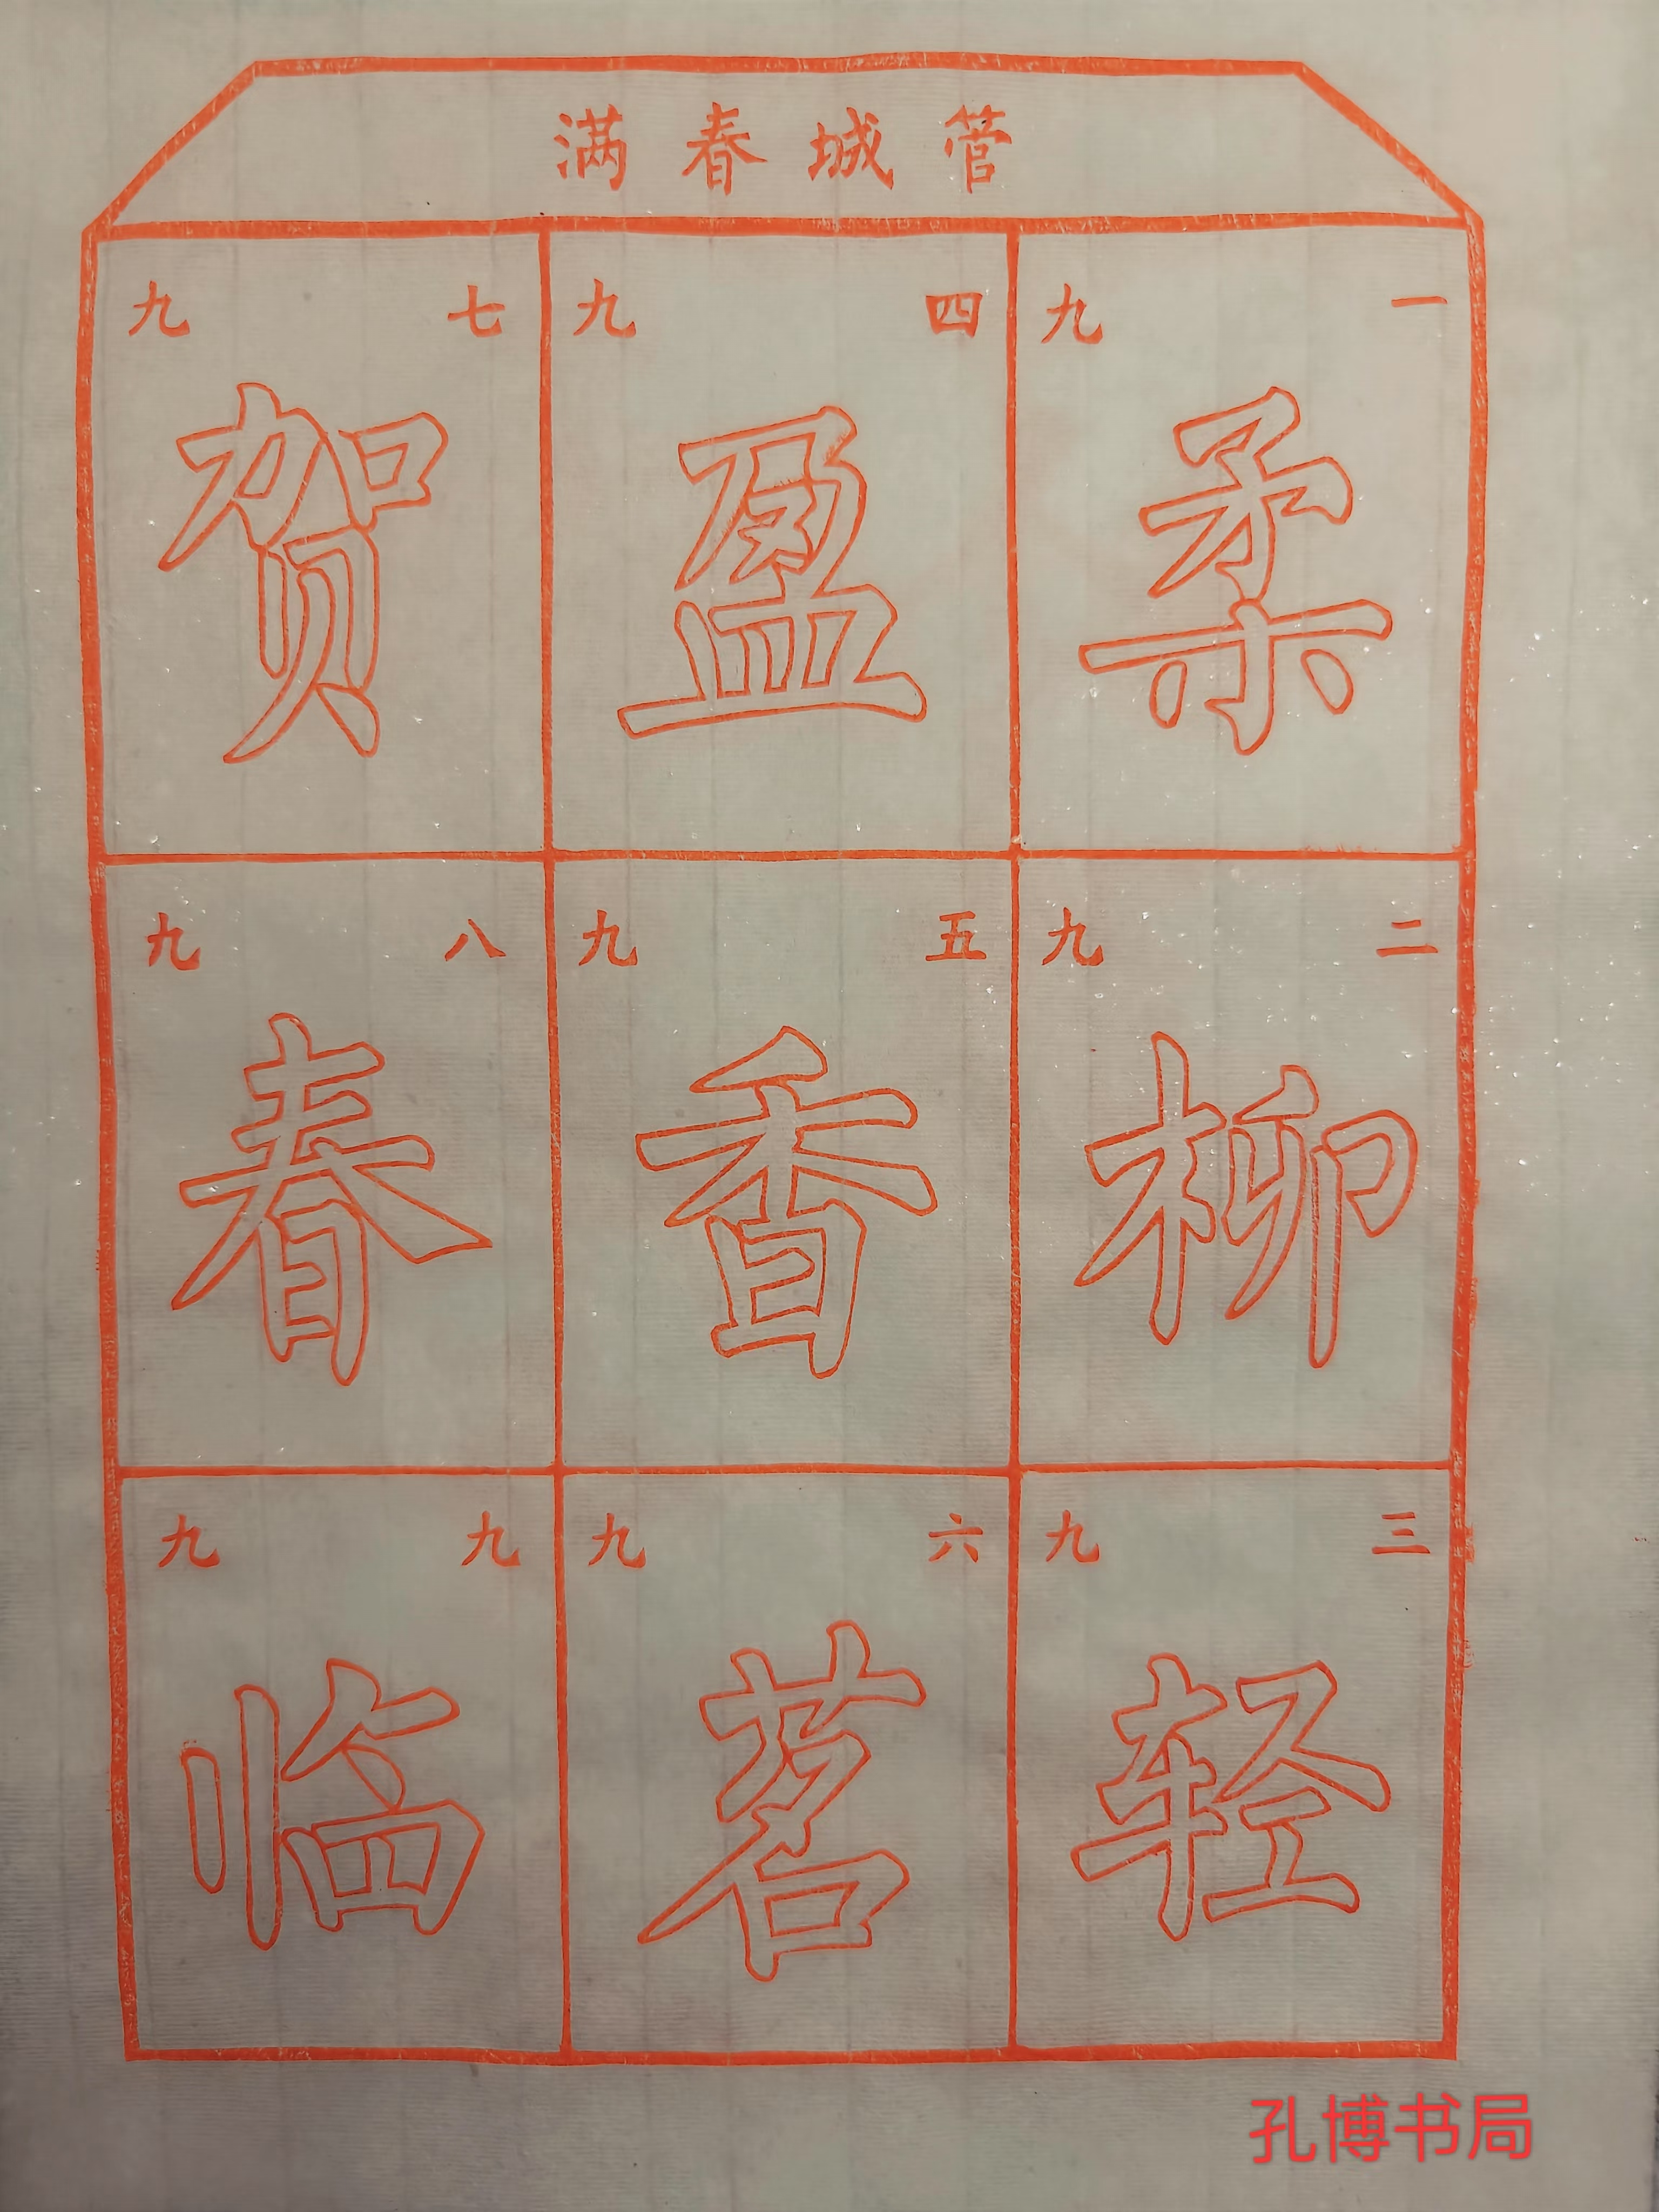 管城春满
一九
柔
二九
柳
三九
轻
四九
盈
五九
香
六九
茗
七九
贺
八九
春
九九
临
孔博书局